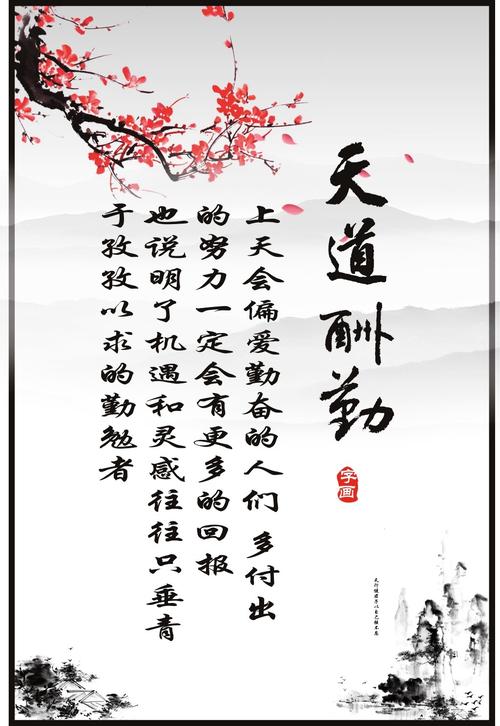 天道酬勤
字画
上天会偏爱勤奋的人们 多付出
的努力一定会有更多的回报
也说明了机遇和灵感往往只垂青
于孜孜以求的勤勉者